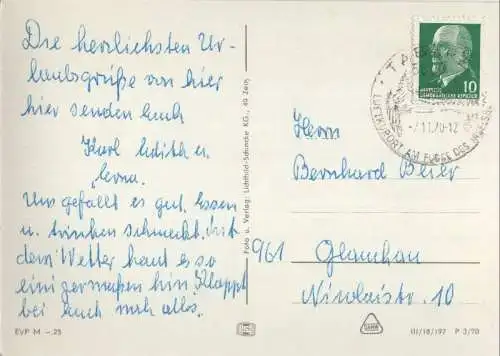 Die herzlichsten Ur-
laubsgrüße von hier
hier senden Euch
Karl Edith u.
Erna.
Uns gefällt es gut. Essen
u. trinken schmeckt. Mit
dem Wetter haut es so
einigermaßen hin. Klappt
bei Euch noch alles.
Foto u. Verlag: Lichtbild-Schincke KG., 49 Zeitz
EVP M -.25
10
DEUTSCHE
DEMOKRATISCHE REPUBLIK
LUFTKURORT AM FUSSE DES
-7.11.70-12
Herrn
Bernhard Beier
961 Glauchau
Nicolaistr. 10
III/18/197 P 3/70